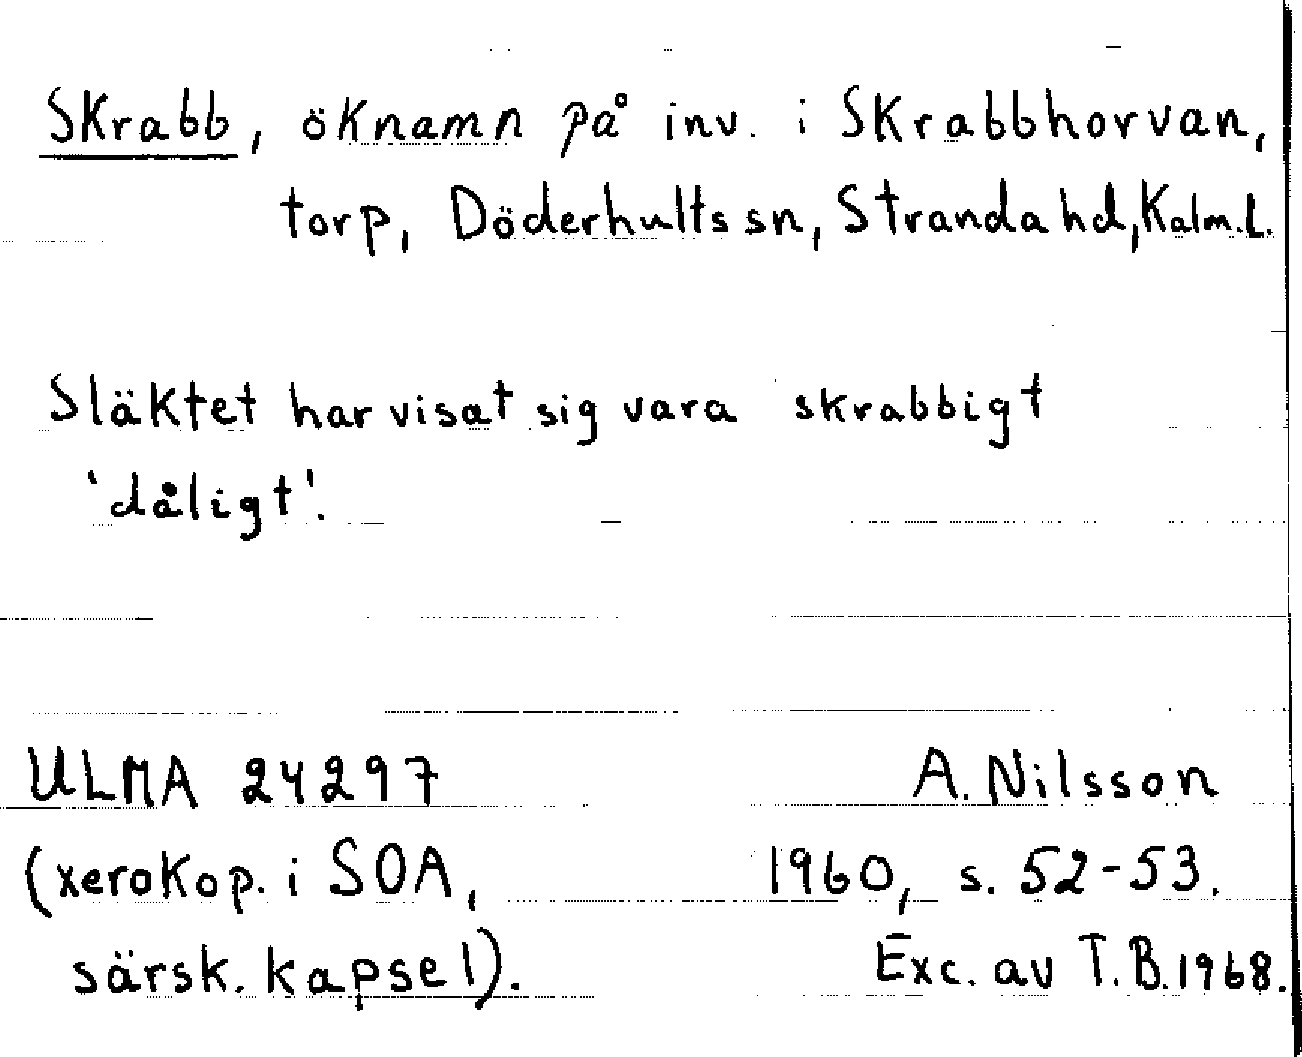 Skrabb, öknamn på inv. i Skrabbhorvan,
torp, Döderhults sn, Stranda hd, Kalm. l.
Släktet har visat sig vara skrabbigt
'dåligt'.
ULMA 24297
(xerokop. i SOA,
särsk. kapsel).
A. Nilsson
1960, s. 52-53.
Exc. av T.B. 1968.